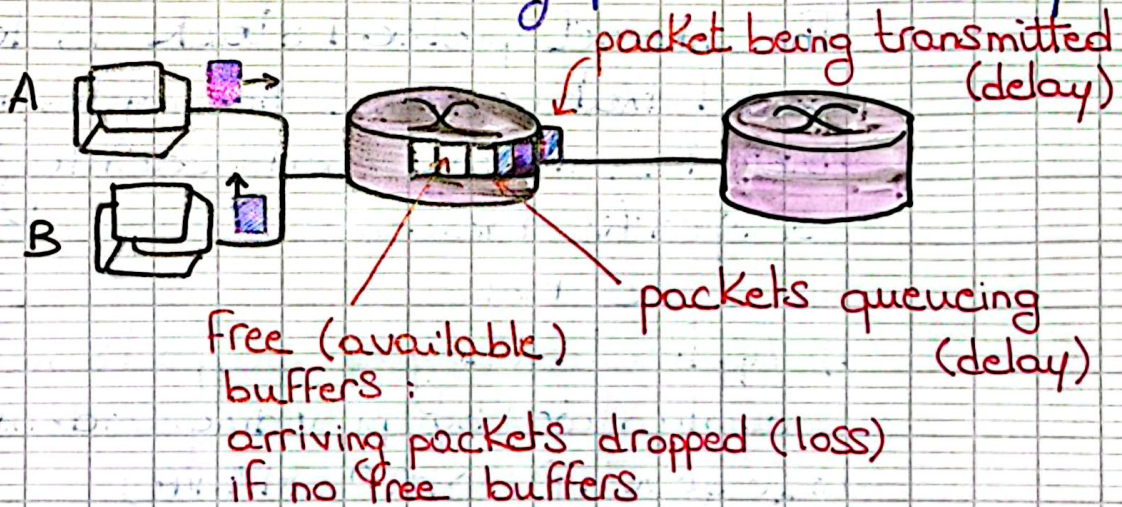 packet being transmitted
(delay)
A
B
packets queueing
(delay)
free (available)
buffers :
arriving packets dropped (loss)
if no free buffers